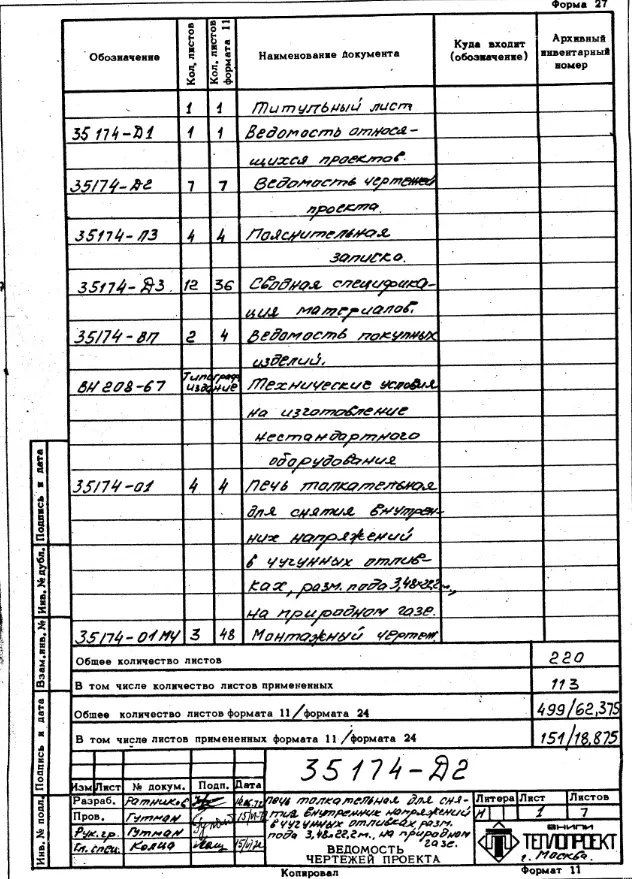 Форма 27
Обозначение Кол. листов Кол. листов формата 11 Наименование документа Куда входит (обозначение) Архивный инвентарный номер
1 1 Титульный лист
35174-Д1 1 1 Ведомость относя-
щихся проектов.
35174-Д2 7 7 Ведомость чертежей
проекта.
35174-ПЗ 4 4 Пояснительная
записка.
35174-Д3. 12 36 Сводная специфика-
ция материалов.
35174-ВП 2 4 Ведомость покупных
изделий.
ВН 208-67 Типограф. издание Технические условия
на изготовление
нестандартного
оборудования
35174-01 4 4 Печь толкательная
для снятия внутрен-
них напряжений
в чугунных отлив-
ках, разм. пода 3,48×22,2м.,
на природном газе.
35174-01МЧ 3 48 Монтажный чертеж
Общее количество листов 220
В том числе количество листов примененных 113
Общее количество листов формата 11/формата 24 499/62,375
В том числе листов примененных формата 11/формата 24 151/18,875
35174-Д2
Изм Лист № докум. Подп. Дата
Разраб. Ратников
Пров. Гутман
Рук. гр. Гутман
Гл. спец.
Печь толкательная для сня-
тия внутренних напряжений
в чугунных отливках, разм.
пода 3,48×22,2м., на природном
газе.
ВЕДОМОСТЬ
ЧЕРТЕЖЕЙ ПРОЕКТА
Литера Лист Листов
И 1 7
ВНИПИ
ТЕПЛОПРОЕКТ
г. Москва.
Инв. № подл. Подпись и дата Взам. инв. № Инв. № дубл. Подпись и дата
Копировал Формат 11